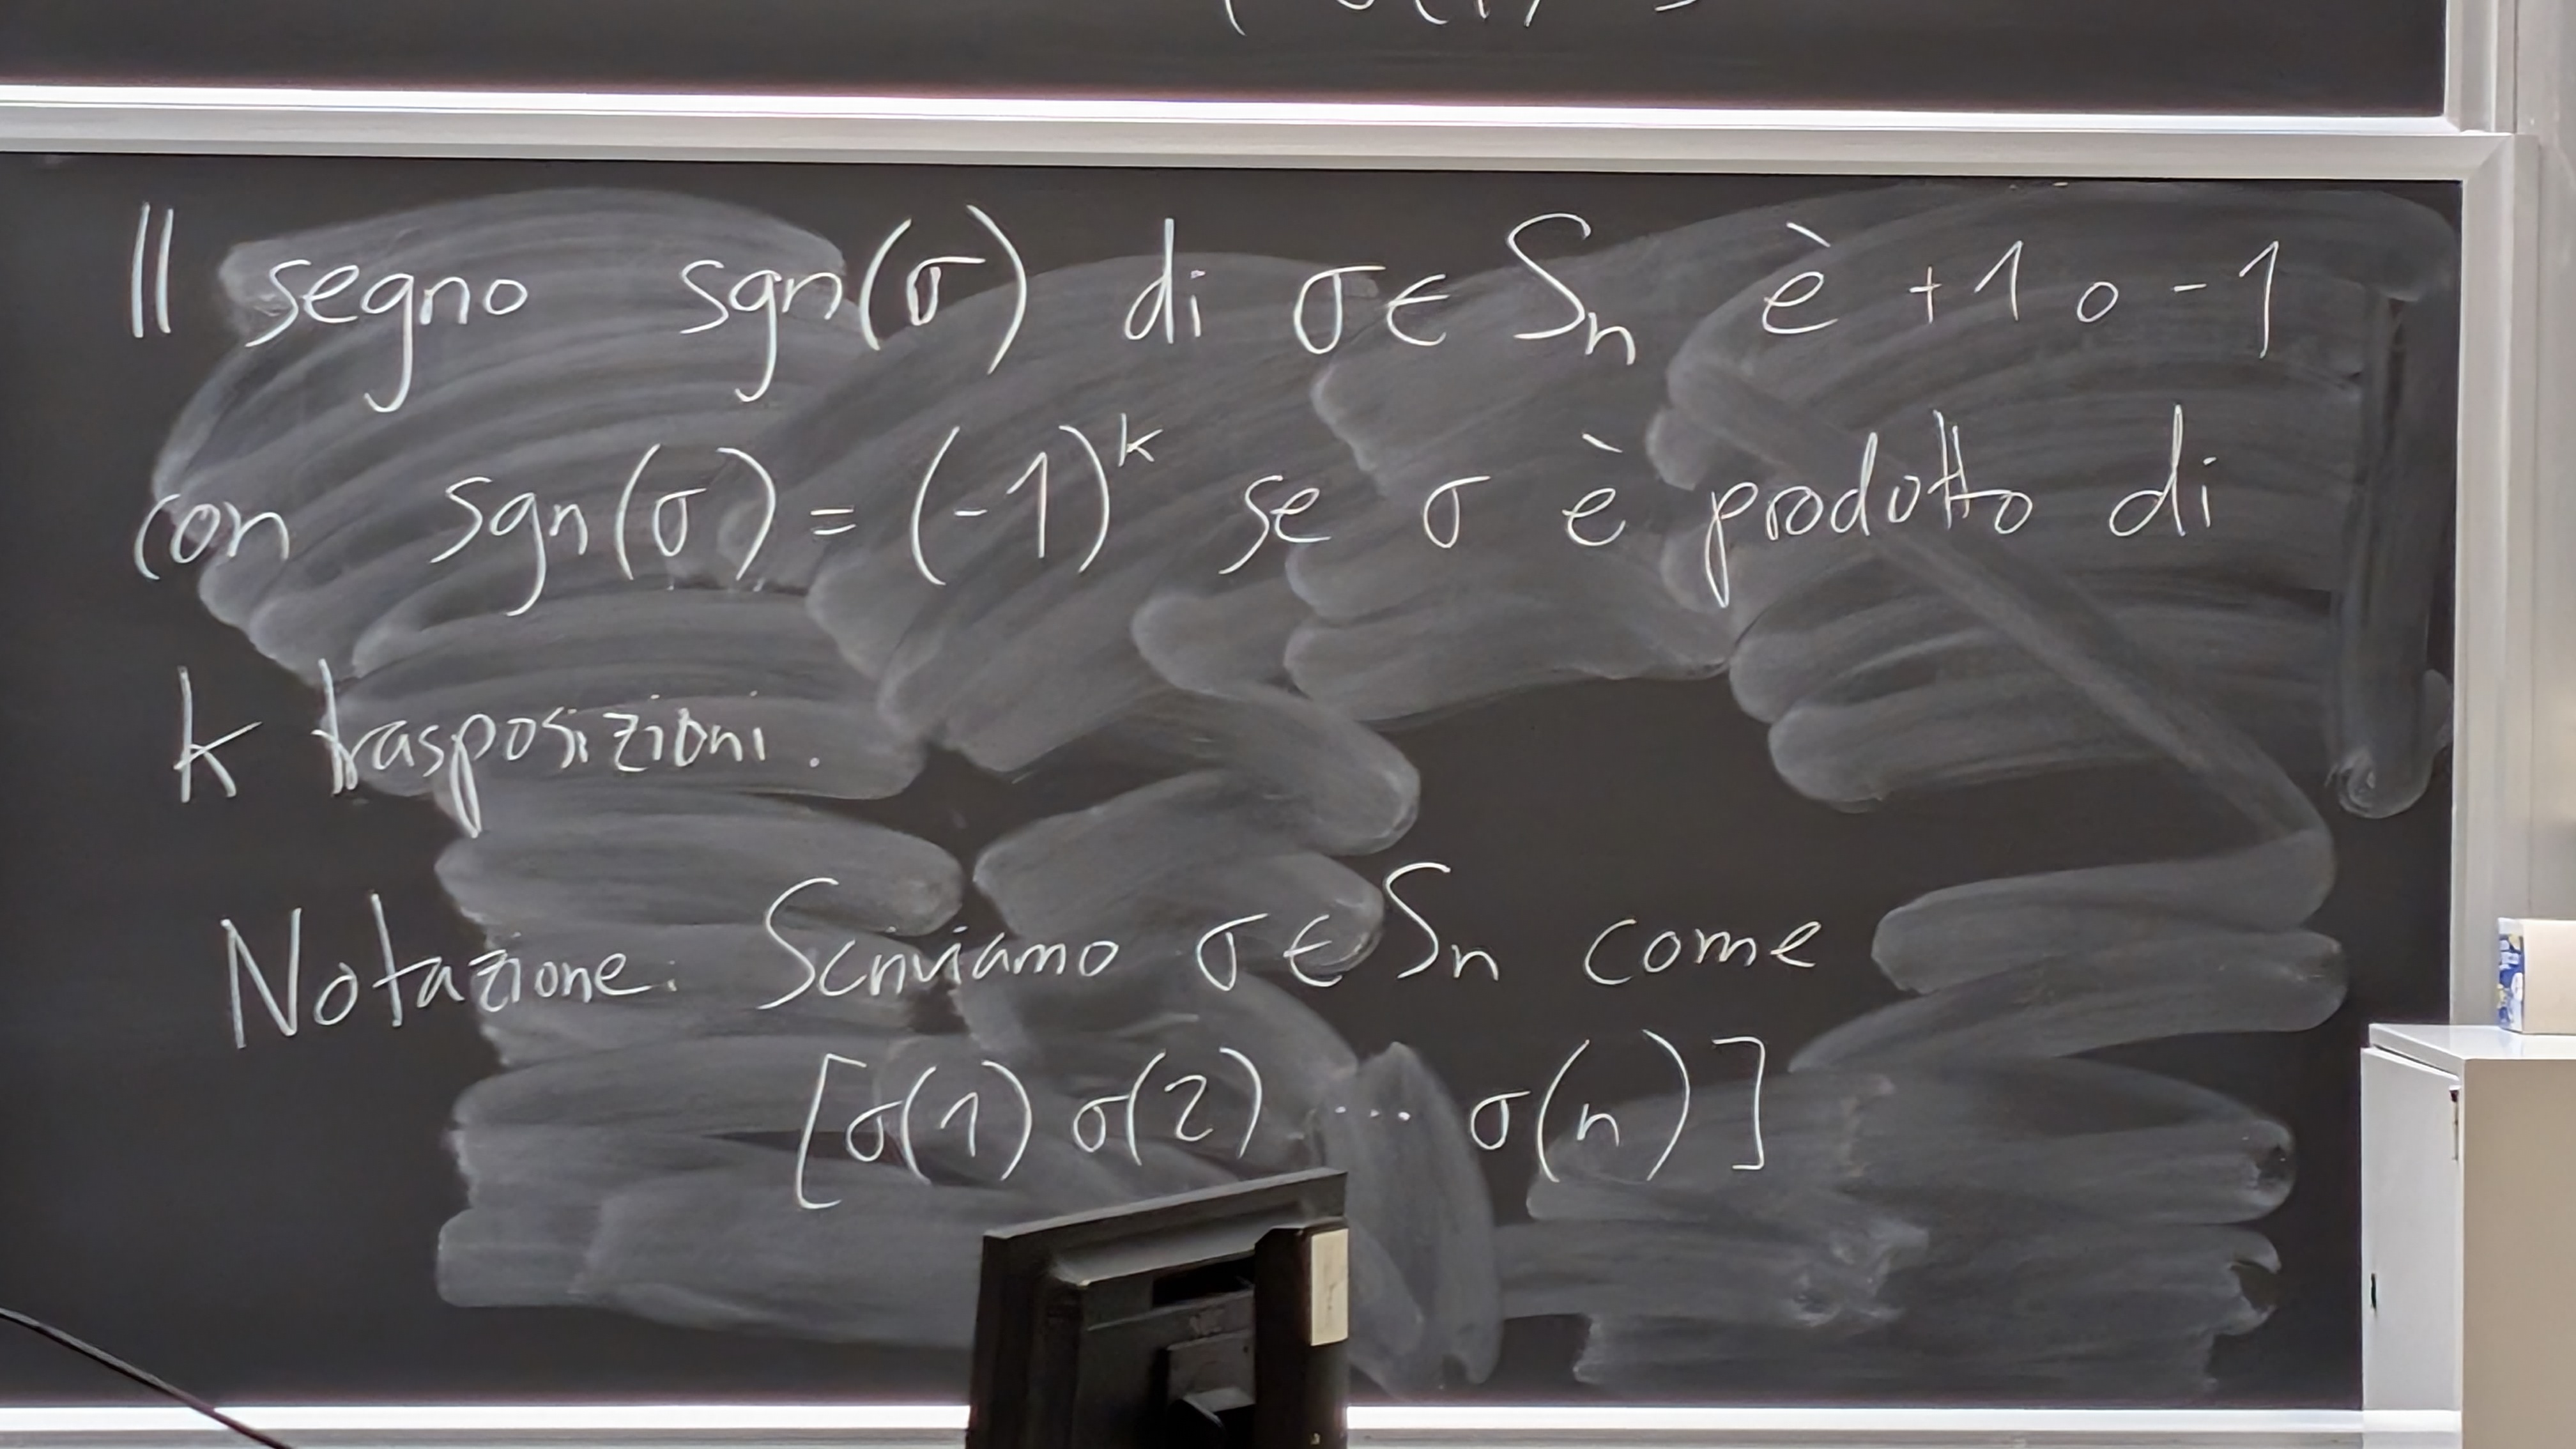 Il segno sgn(σ) di σ ∈ Sn è +1 o -1
con sgn(σ) = (-1)^k se σ è prodotto di
k trasposizioni.
Notazione: Scriviamo σ ∈ Sn come
[σ(1) σ(2) ... σ(n)]